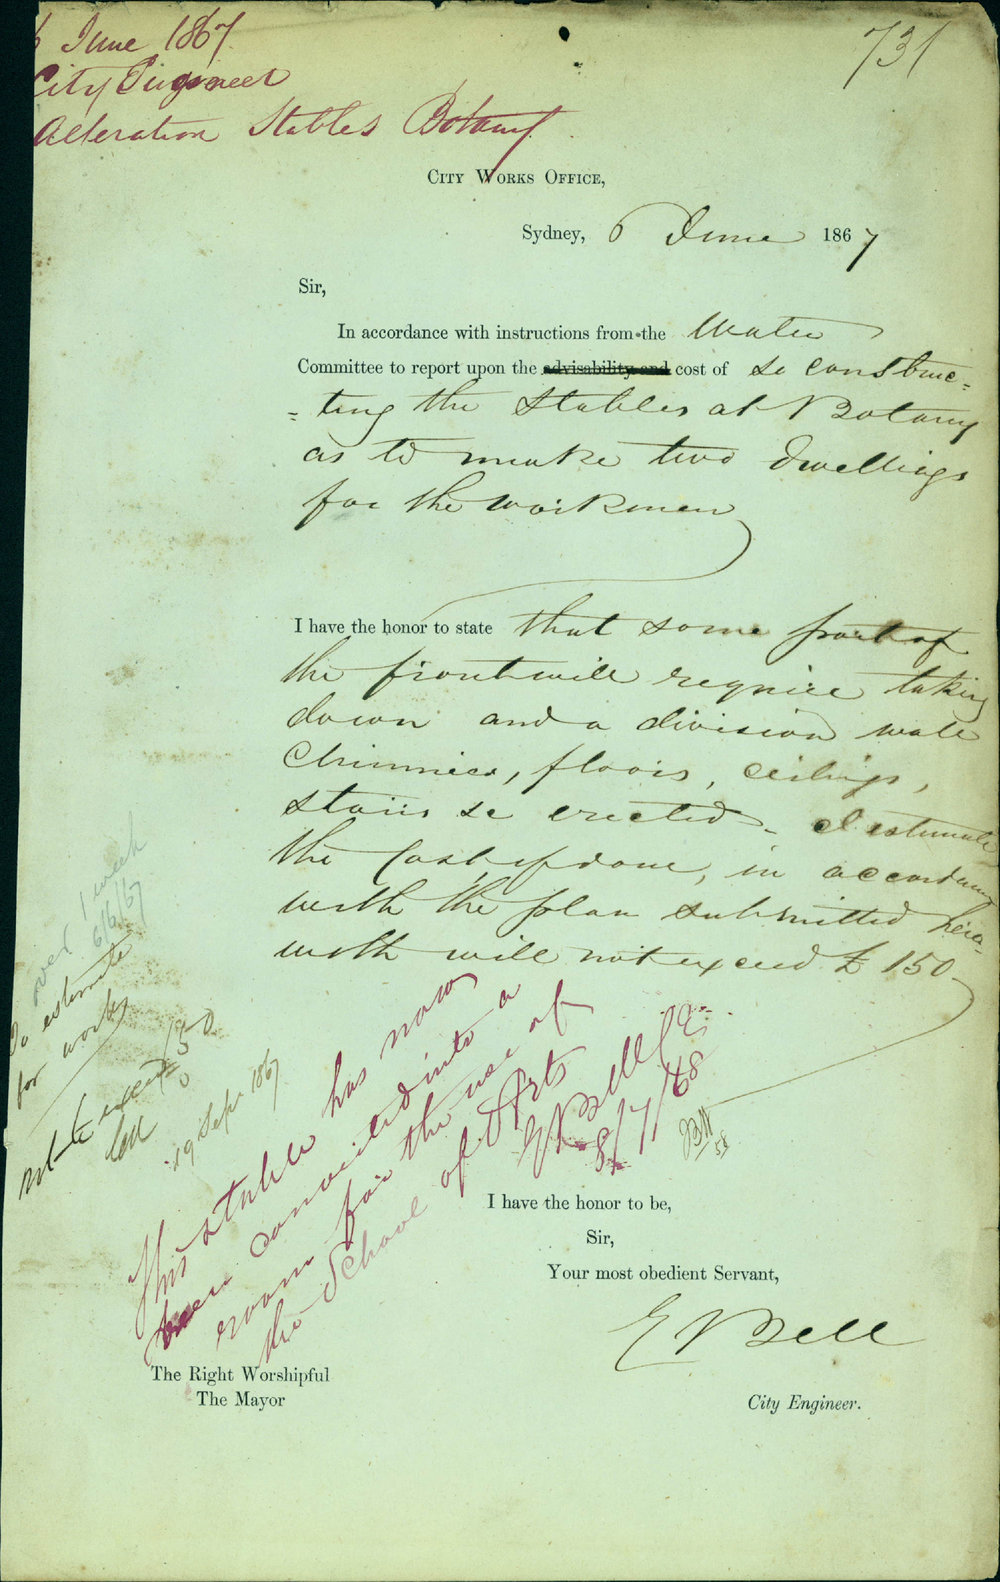 6 June 1867
731
City Engineer
Alteration Stables Botany
City Works Office,
Sydney, 6 June 1867
Sir,
In accordance with instructions from the Water
Committee to report upon the advisability and cost of so construc=
=ting the Stables at Botany
as to make two dwellings
for the workmen
I have the honor to state that some part of
the front will require taking
down and a division wall
Chimnies, floors, ceilings,
stairs &c erected. I estimate
the Cost, if done, in accordance
with the plan submitted here-
with will not exceed £150-
over 1 week
6/6/67
To estimate
for works
not to exceed £150
19 Sept 1867
This stable has now
been converted into a
room for the use of
the School of Arts
E Bell CE
8/7/68
I have the honor to be,
Sir,
Your most obedient Servant,
E Bell
The Right Worshipful
The Mayor
City Engineer.